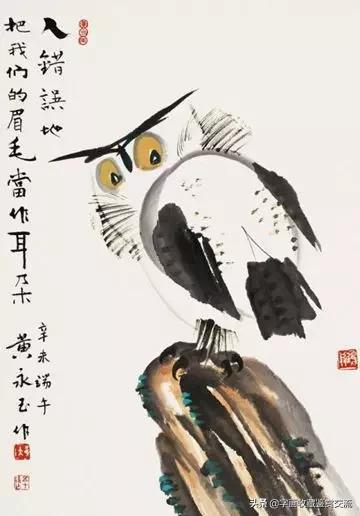 人錯誤地
把我们的眉毛當作耳朵
辛未端午
黄永玉作
头条@字画收藏鉴赏交流